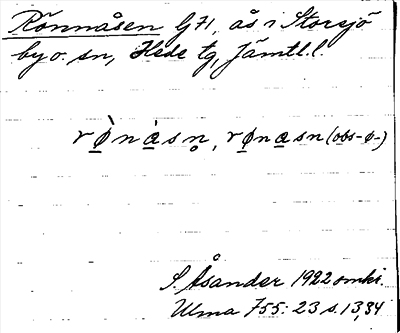 Rönnåsen G71, ås i Storsjö
by o. sn, Hede tg, Jämtl. l.
rø̀nåsn̥, rønasn (obs-ø-)
S. Åsander 1922 omkr.
Ulma 755: 23 s. 13,34